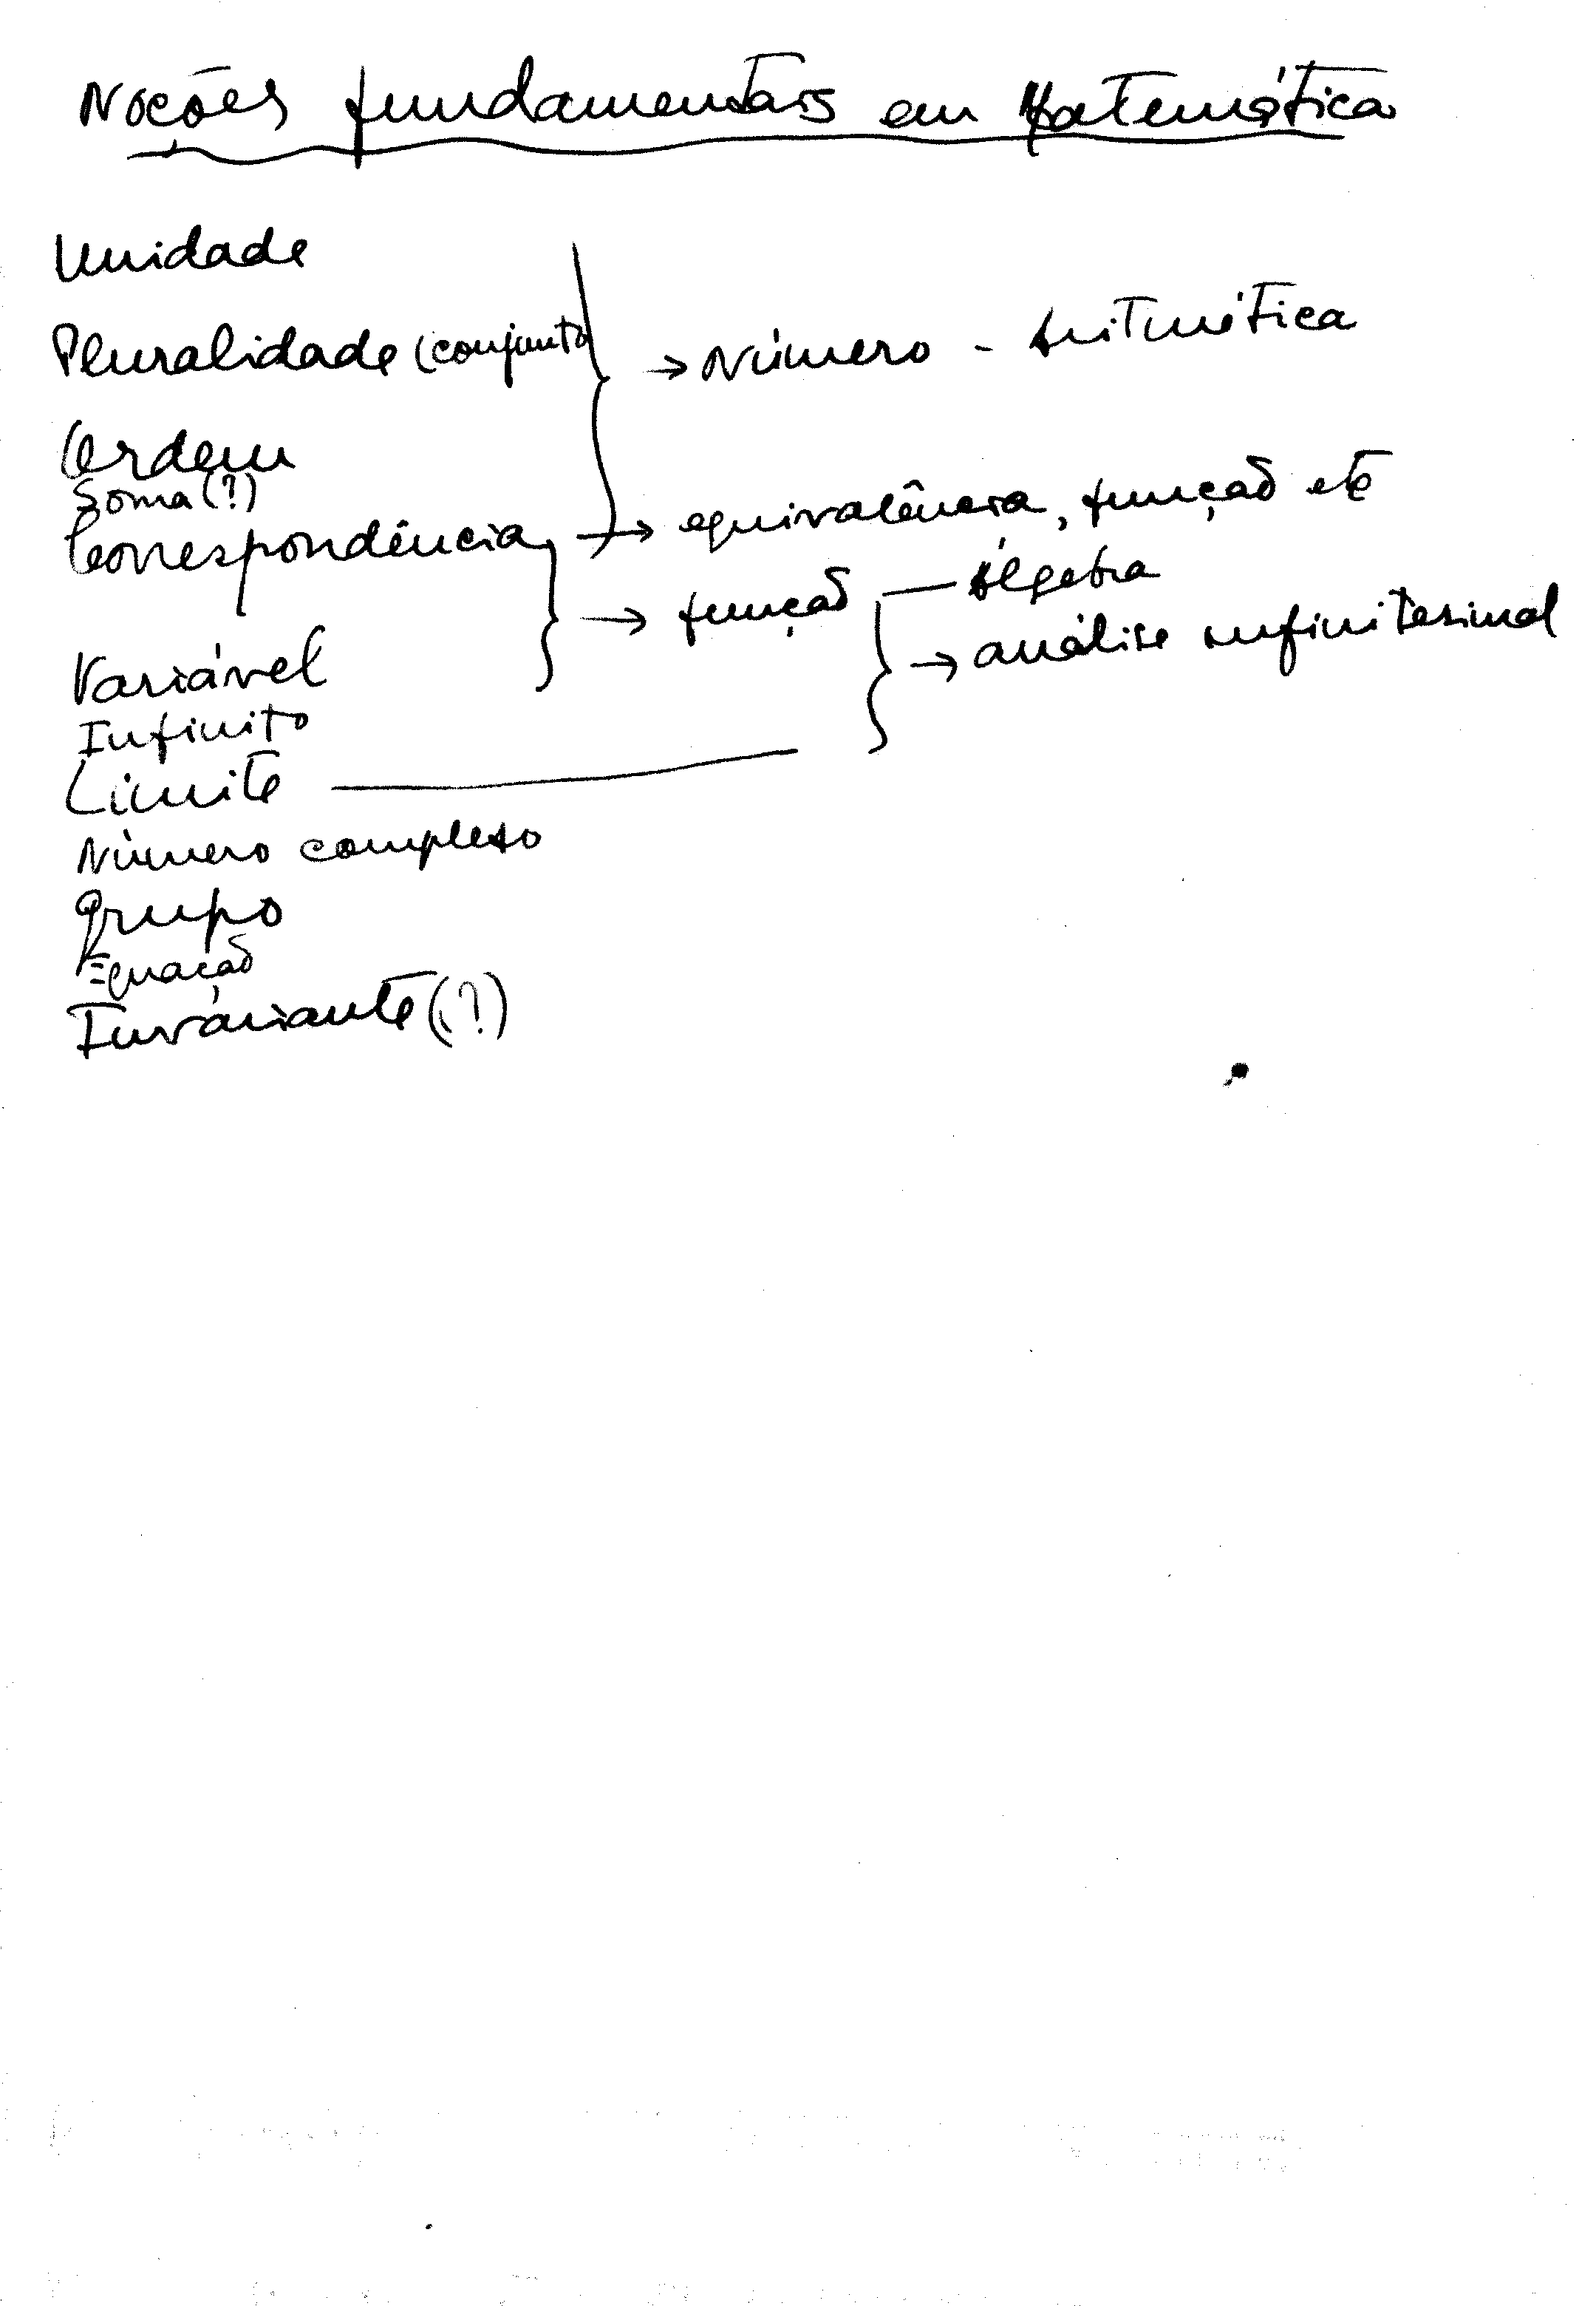 Noções fundamentais em Matemática
Unidade
Pluralidade (conjunto) → Número - Aritmética
Ordem
Soma (?)
Correspondência → equivalência, função etc
→ função — Álgebra
→ análise infinitesimal
Variável
Infinito
Limite
Número complexo
Grupo
Equação
Invariante (?)